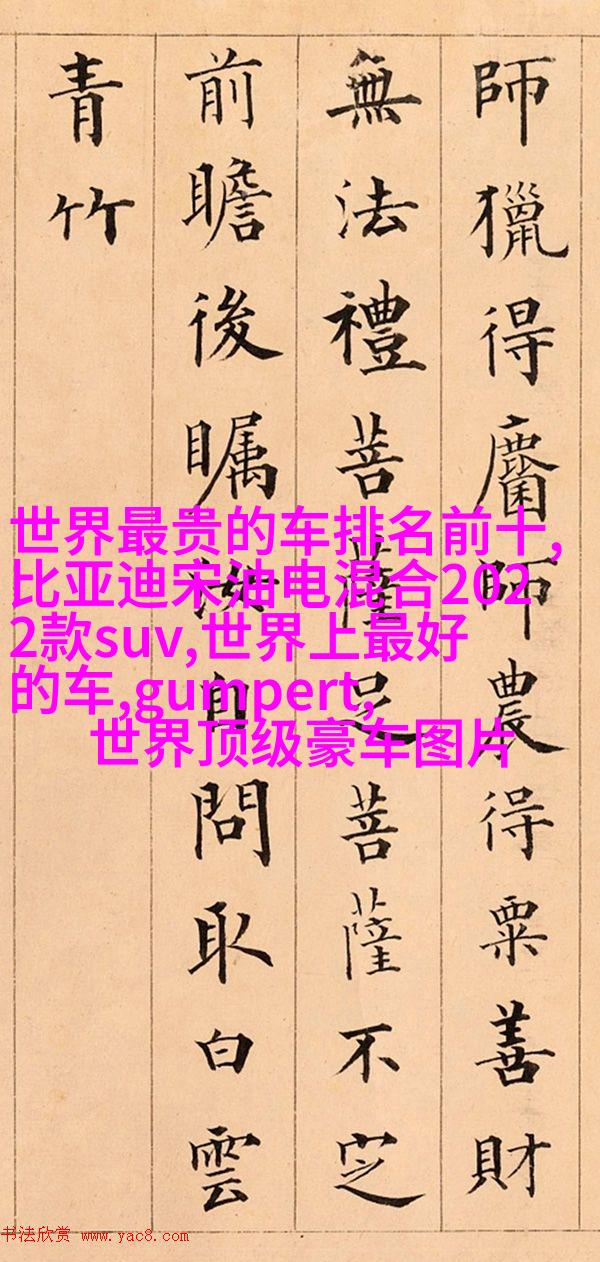 師獵得麕師農得粟善財
無法禮菩薩足菩薩不定
前瞻後矚汝自問取白雲
青竹
世界最贵的车排名前十,
比亚迪宋油电混合202
2款suv,世界上最好
的车,gumpert,
世界顶级豪车图片
书法欣赏 www.yac8.com